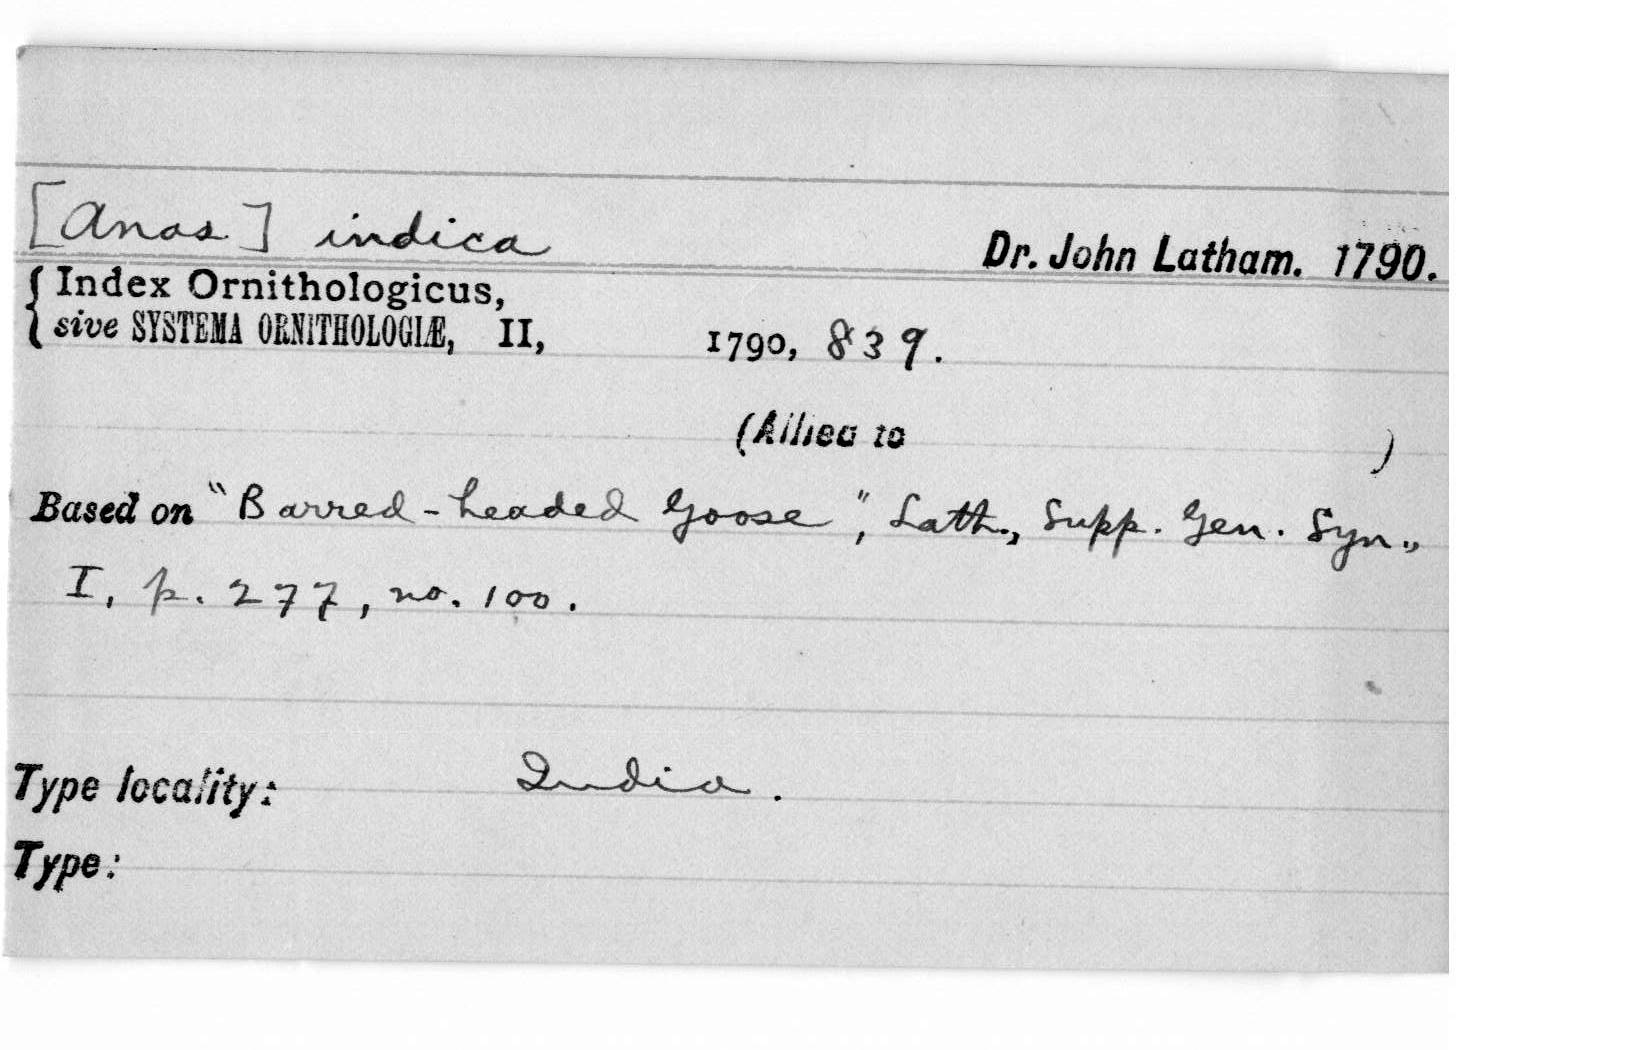 [Anas] indica
Dr. John Latham. 1790.
Index Ornithologicus,
sive SYSTEMA ORNITHOLOGIÆ, II, 1790, 839.
(Allied to )
Based on "Barred-headed Goose", Lath., Supp. Gen. Syn.,
I, p. 277, no. 100.
Type locality: India.
Type: